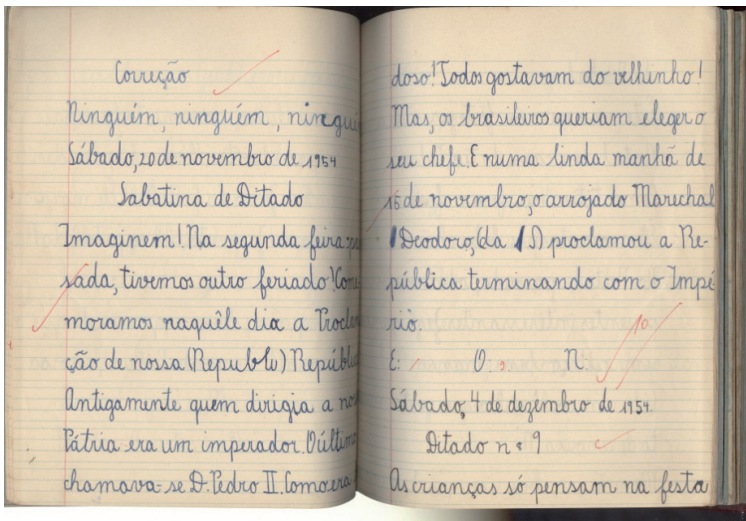 Correção
Ninguém, ninguém, ningué
Sábado, 20 de novembro de 1954
Sabatina de Ditado
Imaginem! Na segunda feira pas
sada, tivemos outro feriado! Come
moramos naquêle dia a Proclama
ção de nossa (Republi) Repúblic
Antigamente quem dirigia a nos
Pátria era um imperador. O último
chamava-se D. Pedro II. Como era
doso! Todos gostavam do velhinho!
Mas, os brasileiros queriam eleger o
seu chefe. E numa linda manhã de
15 de novembro, o arrojado Marechal
Deodoro, (da F) proclamou a Re-
pública terminando com o Impé
rio.
10
E: O: N:
Sábado, 4 de dezembro de 1954.
Ditado nº 9
As crianças só pensam na festa